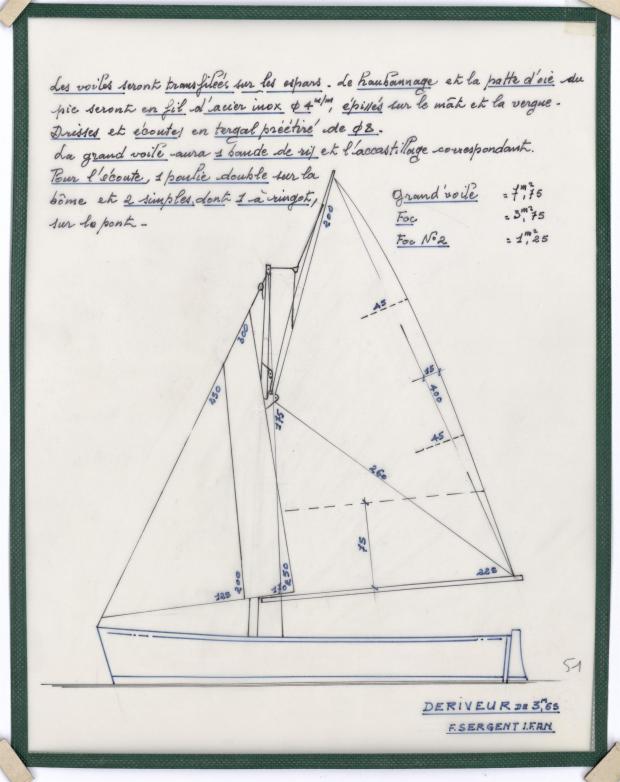 Les voiles seront transfilées sur les espars. Le haubannage et la patte d'oie du
pic seront en fil d'acier inox φ 4 m/m, épissés sur le mât et la vergue.
Drisses et écoutes en tergal préétiré de φ8.
La grand voile aura 1 bande de ris et l'accastillage correspondant.
Pour l'écoute, 1 poulie double sur la
bôme et 2 simples, dont 1 à ringot,
sur le pont.
Grand'voile = 7m²,75
Foc = 3m²,75
Foc N°2 = 1m²,25
200
45
300
15
400
450
175
45
260
75
228
200
250
128
110
51
DERIVEUR DE 3M,65
F. SERGENT I.F.A.N.